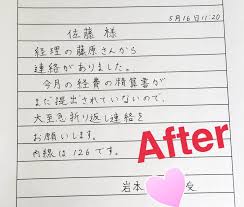 5月16日11:20
佐藤 様
経理の藤原さんから
連絡がありました。
今月の経費の精算書が
まだ提出されていないので、
大至急折り返し連絡を
お願いします。
内線は126です。
After
岩本